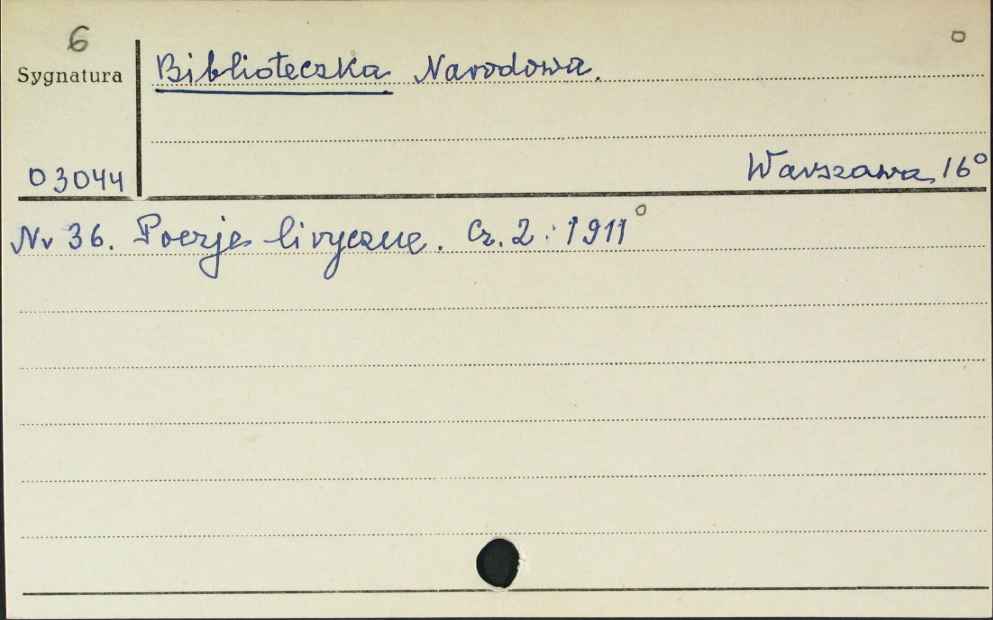 6
Sygnatura
Biblioteczka Narodowa.
03044
Warszawa, 16°
Nr 36. Poezje liryczne. Cz. 2: 1911°